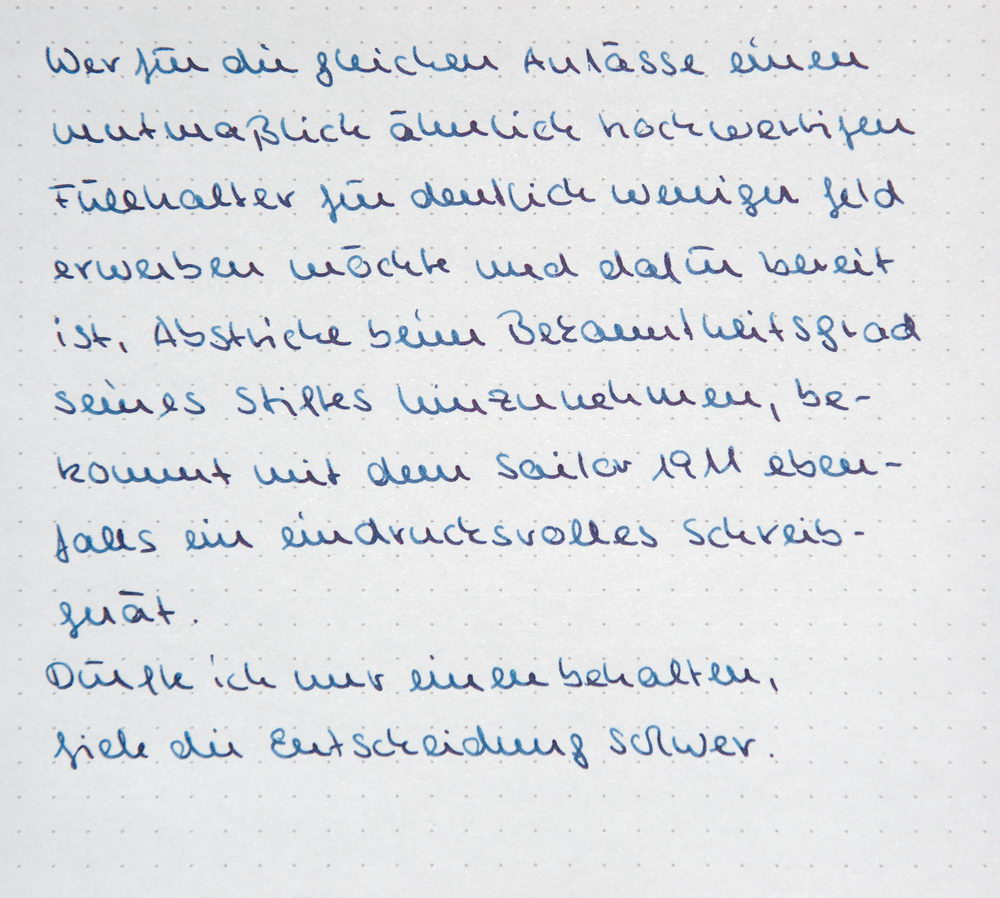 Wer für die gleichen Anlässe einen
mutmaßlich ähnlich hochwertigen
Füllhalter für deutlich weniger Geld
erwerben möchte und dafür bereit
ist, Abstriche beim Bekanntheitsgrad
seines Stiftes hinzunehmen, be-
kommt mit dem Sailor 1911 eben-
falls ein eindrucksvolles Schreib-
gerät.
Dürfte ich nur einen behalten,
fiele die Entscheidung schwer.